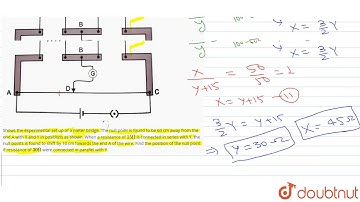 B
B
G
D
A
C
Shows the experimental set up of a meter bridge. The null point is found to be 60 cm away from the
end A with X and Y in positions as shown. When a resistance of 15Ω is connected in series with Y, the
null points is found to shift by 10 cm towards the end A of the wire. Find the position of the null point
if resistance of 30Ω were connected in parallel with Y.
y
X = 3/2 Y
y
X = 3/2 Y
x/y+15 = 50/50 = 1
x = y+15 - (II)
3/2 Y = y+15
⇒ y = 30 Ω
X = 45Ω
doubtnut